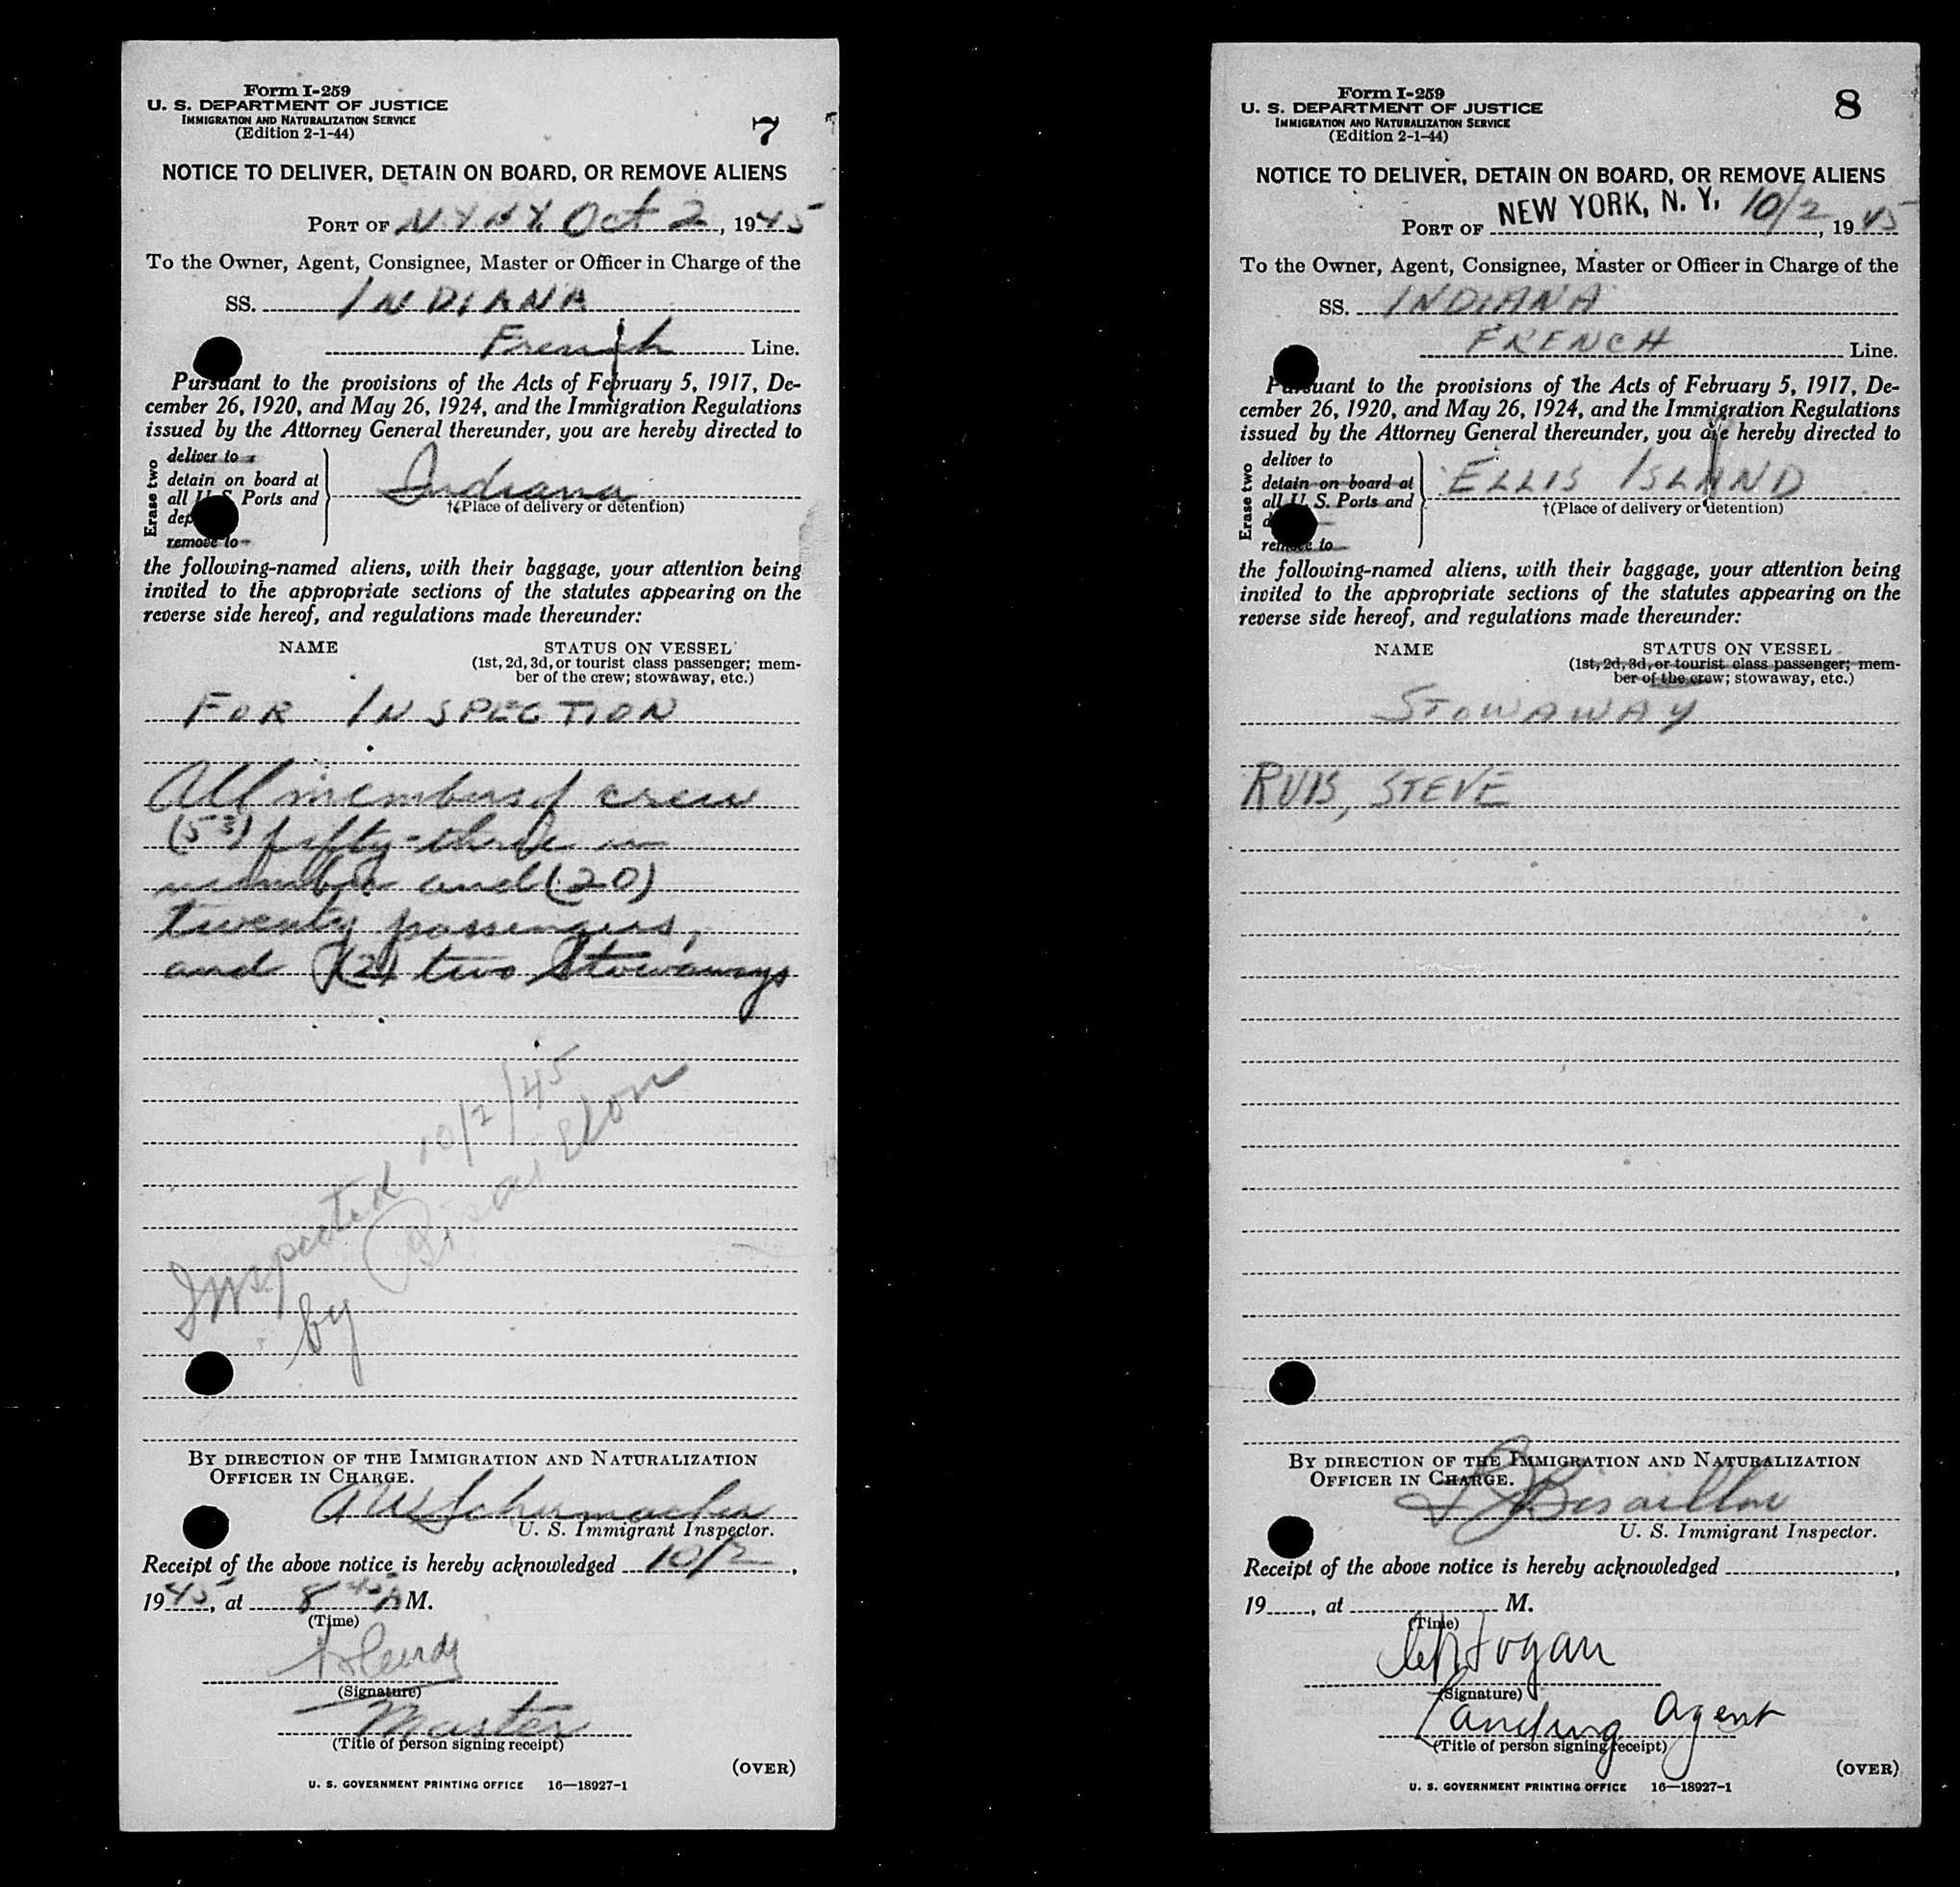 Form I-259
U. S. DEPARTMENT OF JUSTICE
IMMIGRATION AND NATURALIZATION SERVICE
(Edition 2-1-44)
7
NOTICE TO DELIVER, DETAIN ON BOARD, OR REMOVE ALIENS
PORT OF N.Y. N.Y. Oct 2, 1945
To the Owner, Agent, Consignee, Master or Officer in Charge of the
SS. INDIANA
French Line.
Pursuant to the provisions of the Acts of February 5, 1917, De-
cember 26, 1920, and May 26, 1924, and the Immigration Regulations
issued by the Attorney General thereunder, you are hereby directed to
Erase two
deliver to
detain on board at
all U. S. Ports and
remove to
Indiana
†(Place of delivery or detention)
the following-named aliens, with their baggage, your attention being
invited to the appropriate sections of the statutes appearing on the
reverse side hereof, and regulations made thereunder:
NAME STATUS ON VESSEL
(1st, 2d, 3d, or tourist class passenger; mem-
ber of the crew; stowaway, etc.)
FOR INSPECTION
All members of crew
(53) fifty-three in
number and (20)
twenty passengers,
and (2) two Stowaways
Inspected 10/2/45
by
BY DIRECTION OF THE IMMIGRATION AND NATURALIZATION
OFFICER IN CHARGE.
A W Schumacher
U. S. Immigrant Inspector.
Receipt of the above notice is hereby acknowledged 10/2,
1945, at 8 45 A M.
(Time)
(Signature)
Master
(Title of person signing receipt)
(OVER)
U. S. GOVERNMENT PRINTING OFFICE 16—18927-1
Form I-259
U. S. DEPARTMENT OF JUSTICE
IMMIGRATION AND NATURALIZATION SERVICE
(Edition 2-1-44)
8
NOTICE TO DELIVER, DETAIN ON BOARD, OR REMOVE ALIENS
PORT OF NEW YORK, N. Y. 10/2, 1945
To the Owner, Agent, Consignee, Master or Officer in Charge of the
SS. INDIANA
FRENCH Line.
Pursuant to the provisions of the Acts of February 5, 1917, De-
cember 26, 1920, and May 26, 1924, and the Immigration Regulations
issued by the Attorney General thereunder, you are hereby directed to
Erase two
deliver to
detain on board at
all U. S. Ports and
remove to
ELLIS ISLAND
†(Place of delivery or detention)
the following-named aliens, with their baggage, your attention being
invited to the appropriate sections of the statutes appearing on the
reverse side hereof, and regulations made thereunder:
NAME STATUS ON VESSEL
(1st, 2d, 3d, or tourist class passenger; mem-
ber of the crew; stowaway, etc.)
STOWAWAY
RUIS, STEVE
BY DIRECTION OF THE IMMIGRATION AND NATURALIZATION
OFFICER IN CHARGE.
Bisaillon
U. S. Immigrant Inspector.
Receipt of the above notice is hereby acknowledged ,
19 , at M.
(Time)
Hogan
(Signature)
Landing Agent
(Title of person signing receipt)
(OVER)
U. S. GOVERNMENT PRINTING OFFICE 16—18927-1